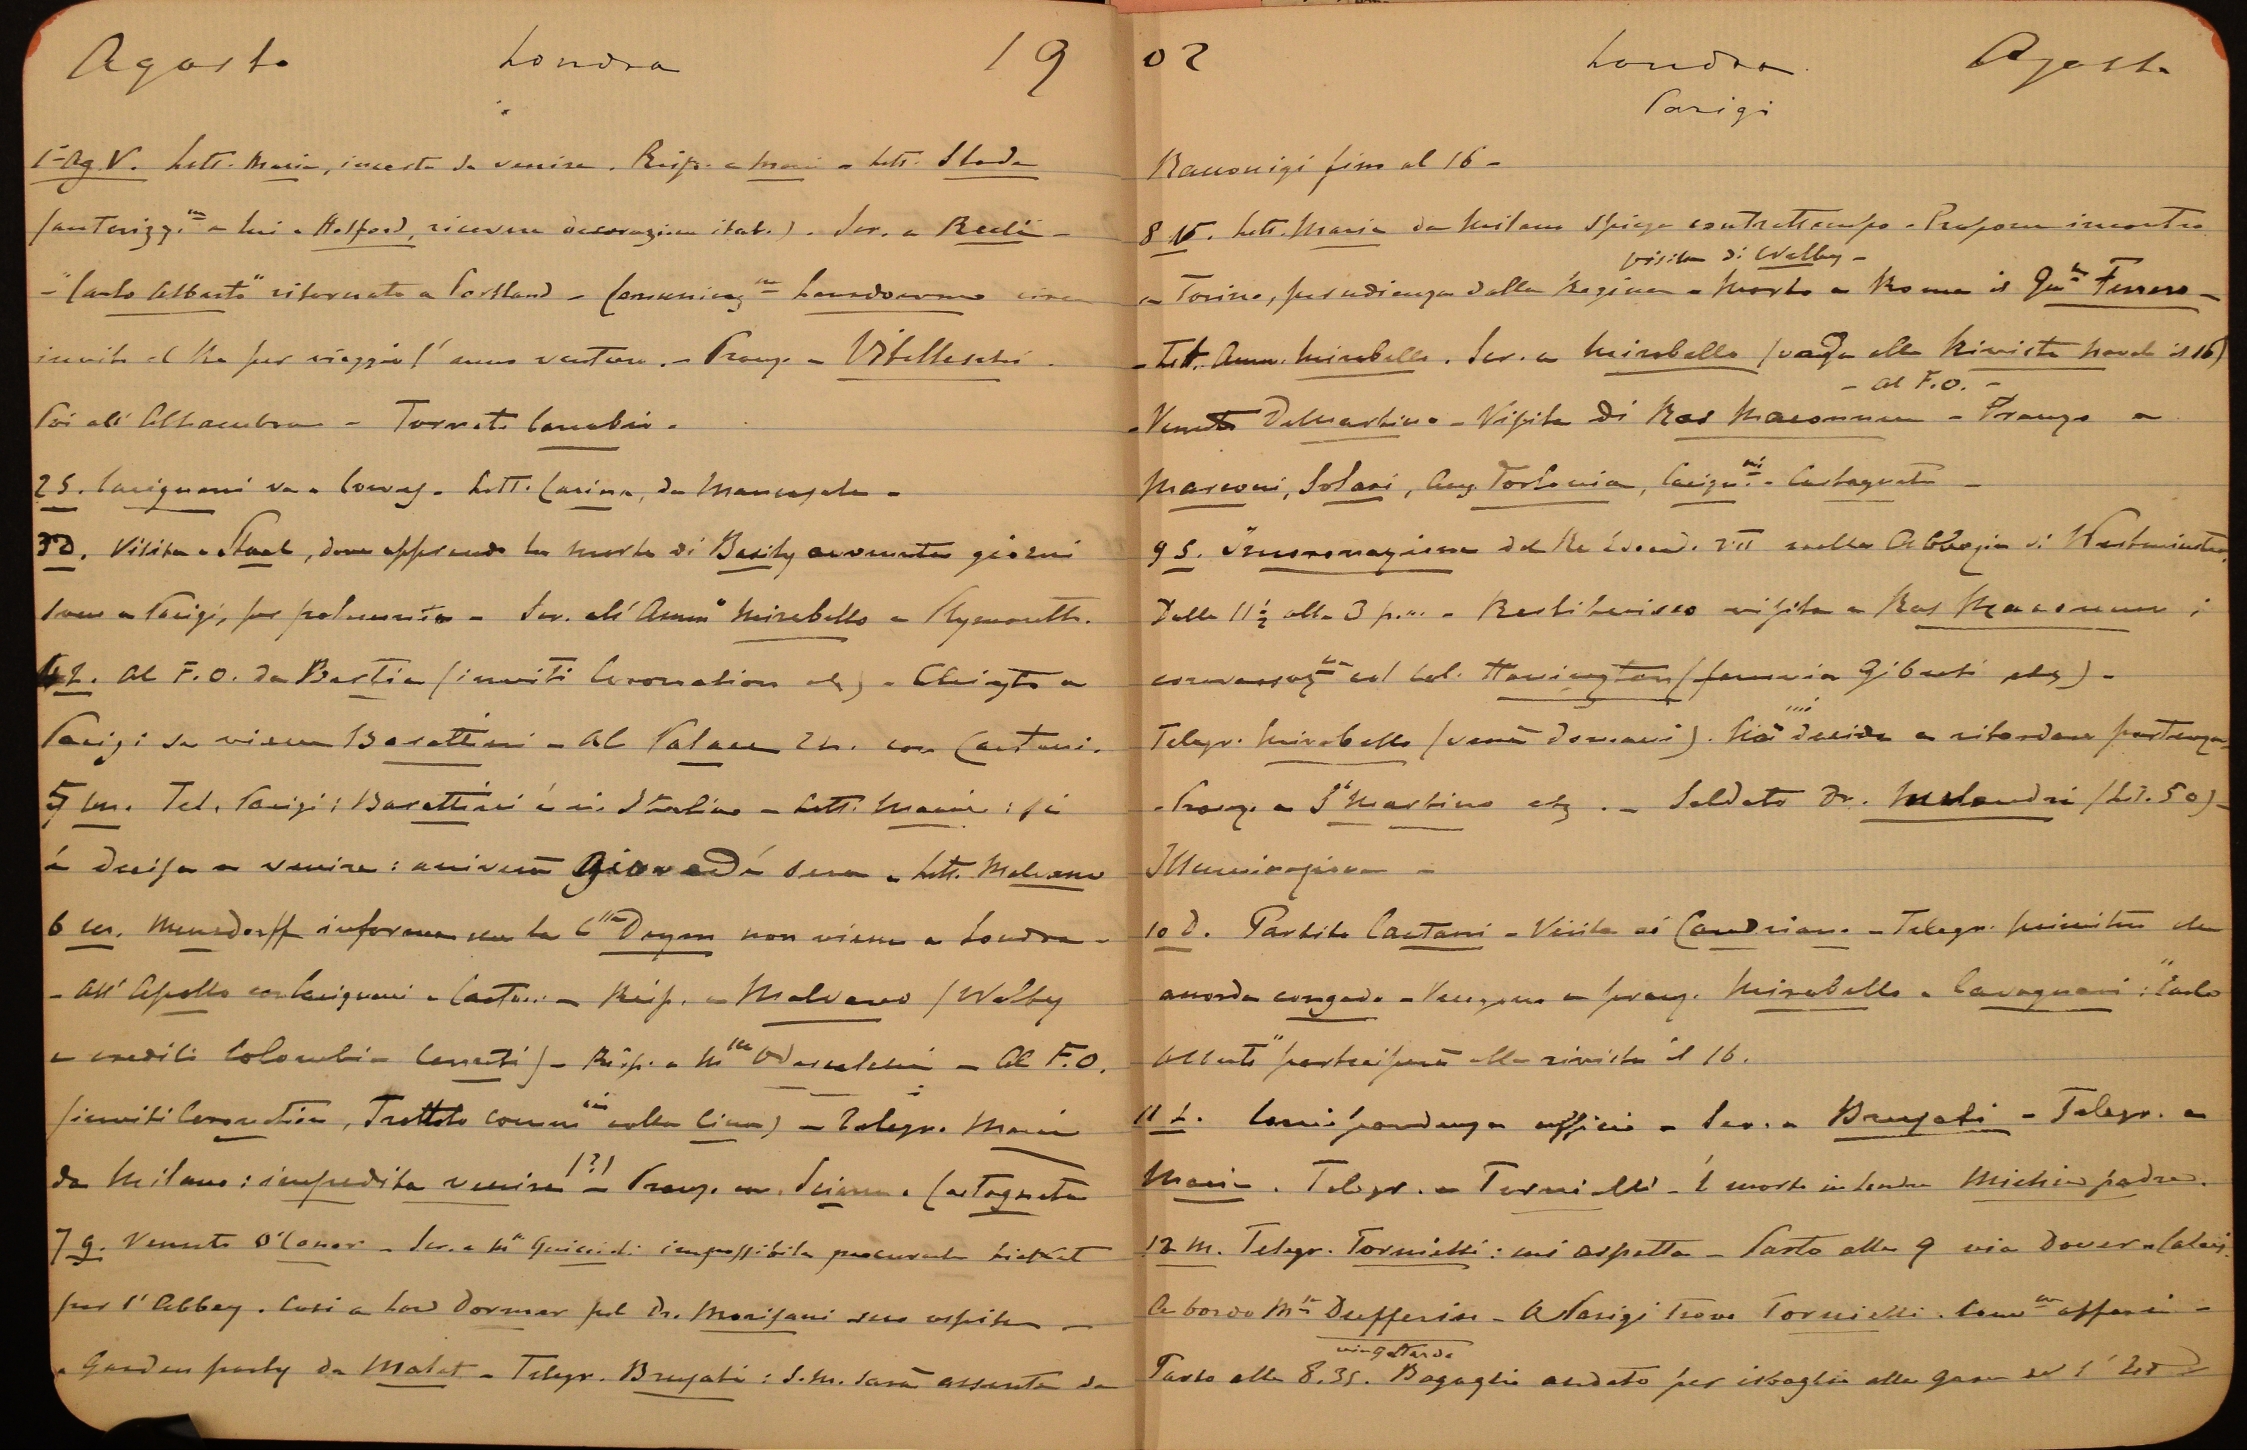 Agosto Londra 19
1° Ag V. Lett. Maria, incerta se venire. Risp. a
(autorizz.ne a lui e Holford, ricevere decorazioni ital.). Scr. a
- "Carlo Alberto" ritornato a Portland - Comunicaz.ne Lansdowne circa
invito al Re per viaggio l'anno venturo. - Pranzo a Vitelleschi.
Poi all'Alhambra - Tornato
2 S. Carignani va a Cowes. Lett. Carina, da
3 D. Visita a Staal, dove apprendo la morte di Basily avvenuta giorni
sono a Parigi, per polmonite - Scr. all'Amm° Mirabello a Plymouth.
4 L. Al F.O. da Bertie (inviti Coronation etc) - Chiesto a
Parigi se viene Barattieri - Al Palace Th. con Caetani.
5 M. Tel. Parigi: Barattieri è in Italia - Lett. Maria: si
è decisa a venire: arriverà Giovedì sera - Lett. Malvano
6 M. Mensdorff informa che la C.ssa Deym non viene a Londra -
- All'Apollo con Carignani e Caetani - Risp. a Malvano (Welby
e crediti Colombia Cerruti) - Risp. a M.se - Al F.O.
(inviti Coronation, Trattato comm. colla Cina) - Telegr. Maria
da Milano: impedita venire (?) - Pranzo con e Castagneto
7 G. Venuto O'Conor - Scr. a M.se Guiccioli impossibile procurare
per l'Abbey. Così a Lord Dormer pel Dr. Morisani suo ospite -
- Garden party da Malet - Telegr. Brusati: S.M. sarà assente da
02 Londra Agosto
Parigi
Racconigi fino al 16 -
8 V. Lett. Maria da Milano spiega contrattempo. Propone incontro
visita di Welby -
a Torino, per udienza dalla Regina - Morto a Roma il G.le Ferrero -
- Lett. Amm. Mirabello. Scr. a Mirabello (venga alla Rivista navale il 16)
- al F.O. -
- Venuto DeMartino - Visita di Ras Maconnen - Pranzo a
Marconi, Solari, Aug. Torlonia, Carign.ni - Castagneto -
9 S. Incoronazione del Re Edoardo VII nella Abbazia di Westminster.
Dalle 11½ alle 3 p.m. - Restituisco visita a Ras Maconnen;
conversaz.ne col Col. Harrington (ferrovia Gibuti etc) -
Telegr. Mirabello (verrà domani). decide a ritardare partenza
- Pranzo a S. Martino etc. - Saldato Dr. Melandri (Ls. 50) -
Illuminazione -
10 D. Partito Caetani - Visita ai Candriano - Telegr. ministero che
accorda congedo - Vengono a pranzo Mirabello e Cavagnari: "Carlo
Alberto" parteciperà alla rivista il 16.
11 L. Corrispondenza ufficio - Scr. a Brusati - Telegr. a
Maria. Telegr. a Tornielli - È morto in Londra padre.
12 M. Telegr. Tornielli: mi aspetta - Parto alle 9 via Dover e Calais.
A bordo M.sa Dufferin - A Parigi trovo Tornielli. affari -
via Gottardo
Parto alle 8.35. Bagaglio andato per isbaglio alla gare de l'Est